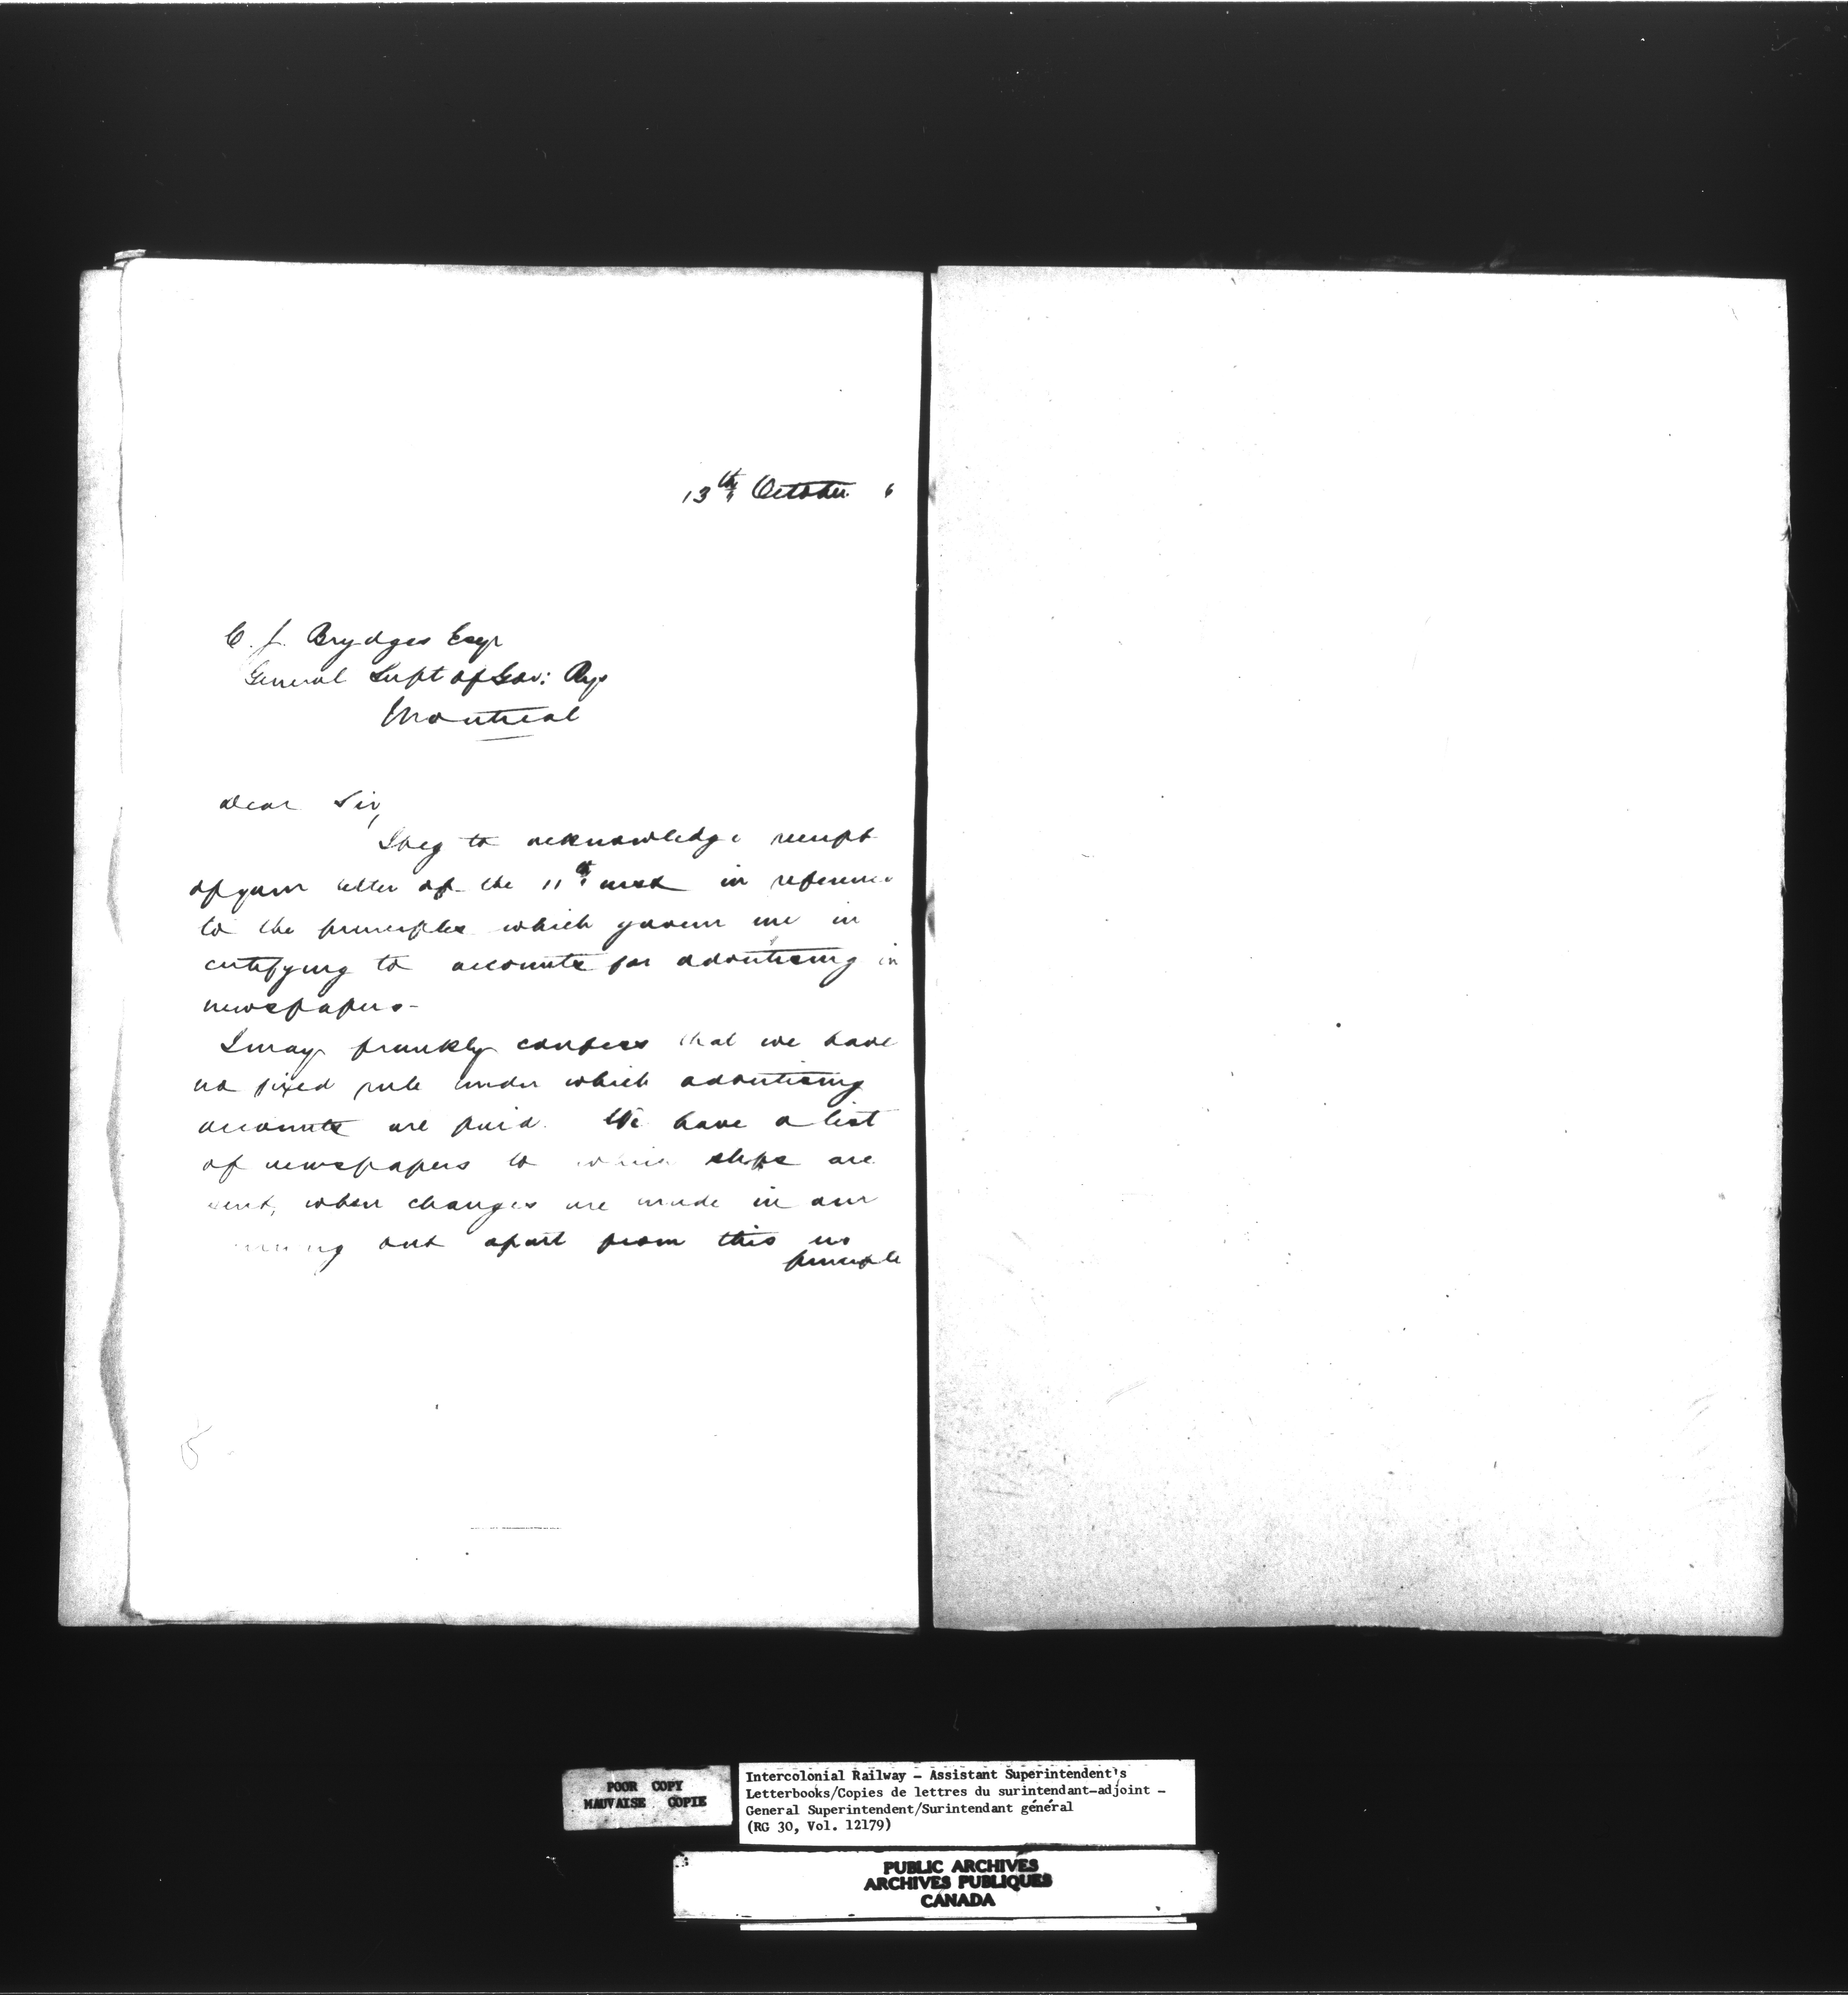 13th October 6
C. J. Brydges Esqr
General Supt of Gov: Rys
Montreal
Dear Sir,
I beg to acknowledge receipt
of your letter of the 11th inst in reference
to the principles which govern me in
certifying to accounts for advertising in
newspapers-
I may frankly confess that we have
no fixed rule under which advertising
accounts are paid. We have a list
of newspapers to which slips are
sent, when changes are made in our
and apart from this no
principle
POOR COPY
MAUVAISE COPIE
Intercolonial Railway - Assistant Superintendent's
Letterbooks/Copies de lettres du surintendant-adjoint -
General Superintendent/Surintendant général
(RG 30, Vol. 12179)
PUBLIC ARCHIVES
ARCHIVES PUBLIQUES
CANADA